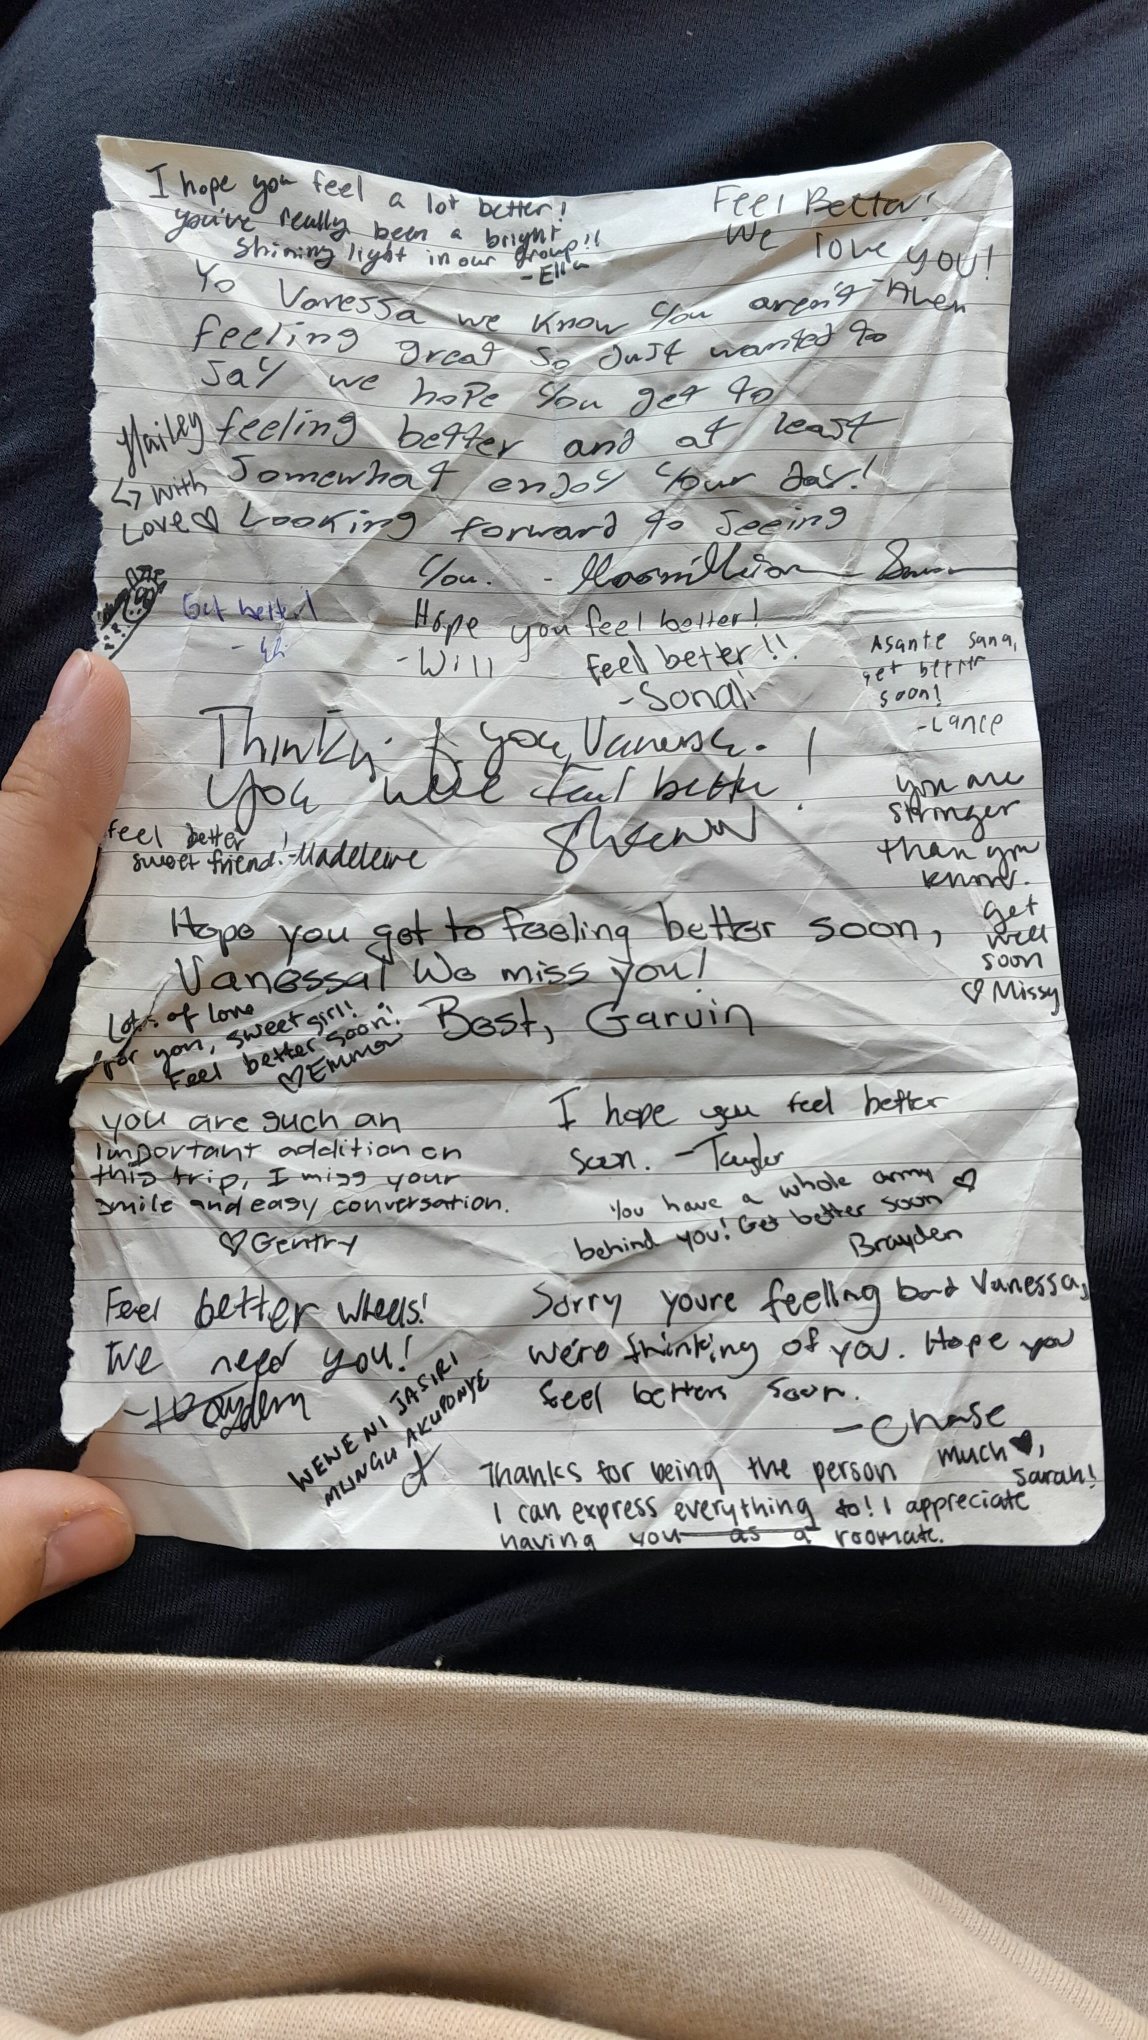 I hope you feel a lot better!
you've really been a bright
shining light in our group!!
-Ella
Feel Better!
We love you!
Yo Vanessa we know you aren't
feeling great so just wanted to
say we hope you get to
feeling better and at least
somewhat enjoy your day!
Looking forward to seeing
you. - Maxmillian
Hailey
↳ with
Love ♡
Get better!
Hope you feel better!
-Will
Feel better!!
-Sonali
Asante sana,
get better
soon!
-Lance
Thinking of you, Vanessa.
You will feel better!
Feel better
sweet friend! -Madeleine
you are
stronger
than you
know.
get
well
soon
♡ Missy
Hope you get to feeling better soon,
Vanessa! We miss you!
Best, Garvin
Lots of love
for you, sweet girl!
Feel better soon!
♡ Emma
you are such an
important addition on
this trip, I miss your
smile and easy conversation.
♡ Gentry
I hope you feel better
soon. -Taylor
You have a whole army ♡
behind you! Get better soon
Brayden
Feel better wheels!
We need you!
WEWE NI JASIRI
MUNGU AKUPONYE
Sorry youre feeling bad Vanessa,
we're thinking of you. Hope you
feel betters soon.
-Chase
Thanks for being the person
I can express everything to! I appreciate
having you as a roomate.
much ♥,
Sarah!